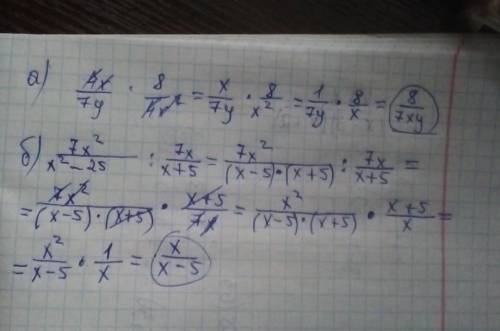 а) 4x/7y · 8/4x² = x/7y · 8/x² = 1/7y · 8/x = 8/7xy
б) 7x²/x²-25 : 7x/x+5 = 7x²/(x-5)·(x+5) : 7x/x+5 =
= 7x²/(x-5)·(x+5) · x+5/7x = x²/(x-5)·(x+5) · x+5/x =
= x²/x-5 · 1/x = x/x-5